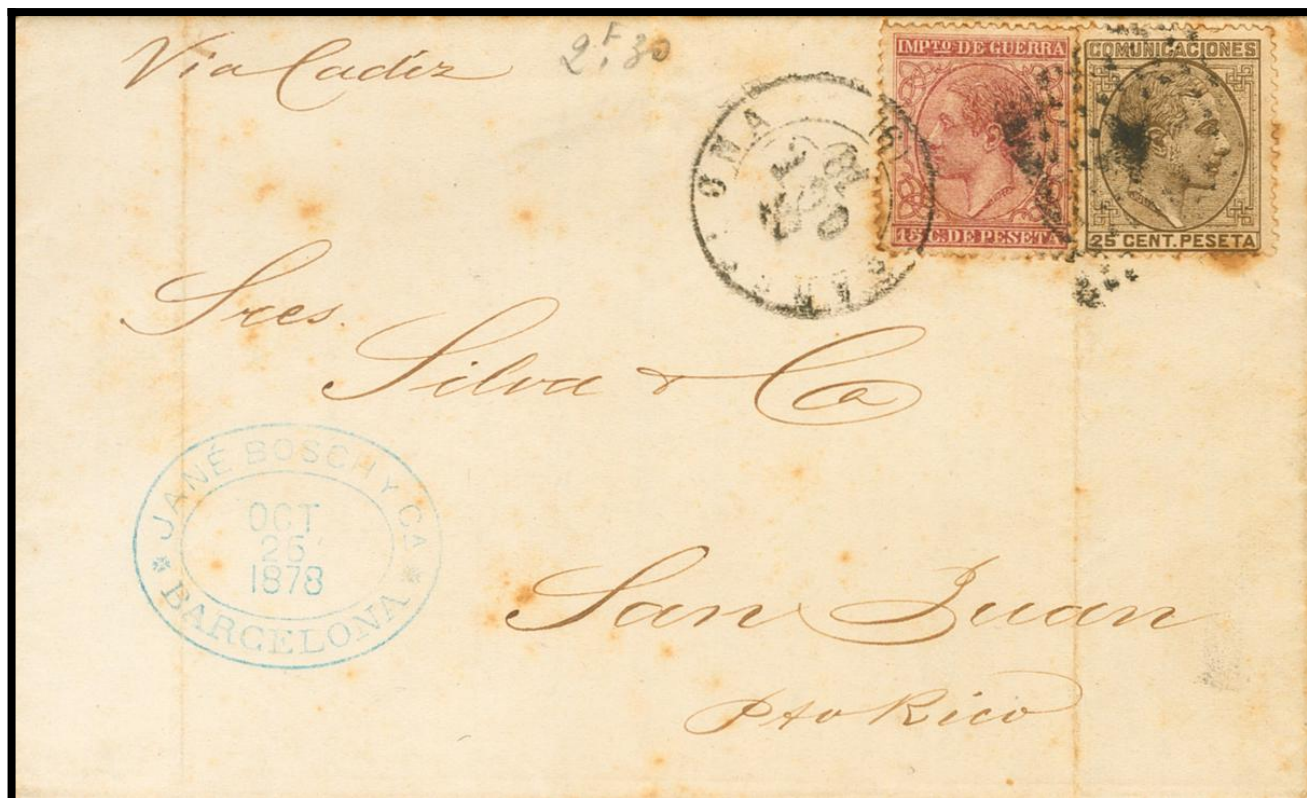 Via Cadiz
2f 30
IMPTO. DE GUERRA
15 C. DE PESETA
COMUNICACIONES
25 CENT. PESETA
Sres.
Silva & Ca
JANÉ BOSCH Y CA
OCT
26
1878
BARCELONA
San Juan
Pto Rico